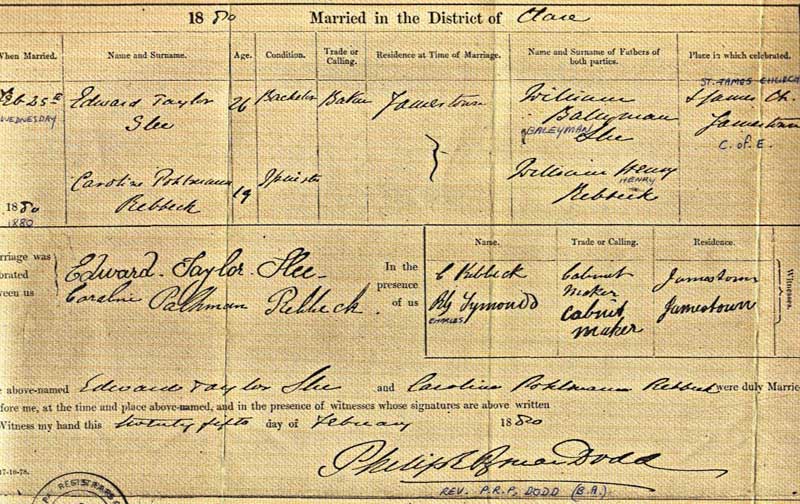 1880 Married in the District of Clare
When Married. Name and Surname. Age. Condition. Trade or Calling. Residence at Time of Marriage. Name and Surname of Fathers of both parties. Place in which celebrated.
Feb 25th Edward Taylor Slee 26 Bachelor Baker Jamestown William Baleyman Slee St James Ch. Jamestown
WEDNESDAY BALEYMAN ST. JAMES CHURCH C. of E.
Caroline Pohlmann Rebbeck 19 Spinster William Henry Rebbeck
HENRY
1880
1880
rriage was
brated
ween us
Edward Taylor Slee
Caroline Pohlmann Rebbeck.
In the
presence
of us
Name. Trade or Calling. Residence.
C Rebbeck Cabinet Maker Jamestown
Symonds Cabinet maker Jamestown
CHARLES
Witnesses.
e above-named Edward Taylor Slee and Caroline Pohlmann Rebbeck were duly Marrie
fore me, at the time and place above-named, and in the presence of witnesses whose signatures are above written
Witness my hand this twenty fifth day of February 1880
Philip R P Dodd
REV. P.R.P. DODD (B.A.)
17-10-78.
REGISTRAR